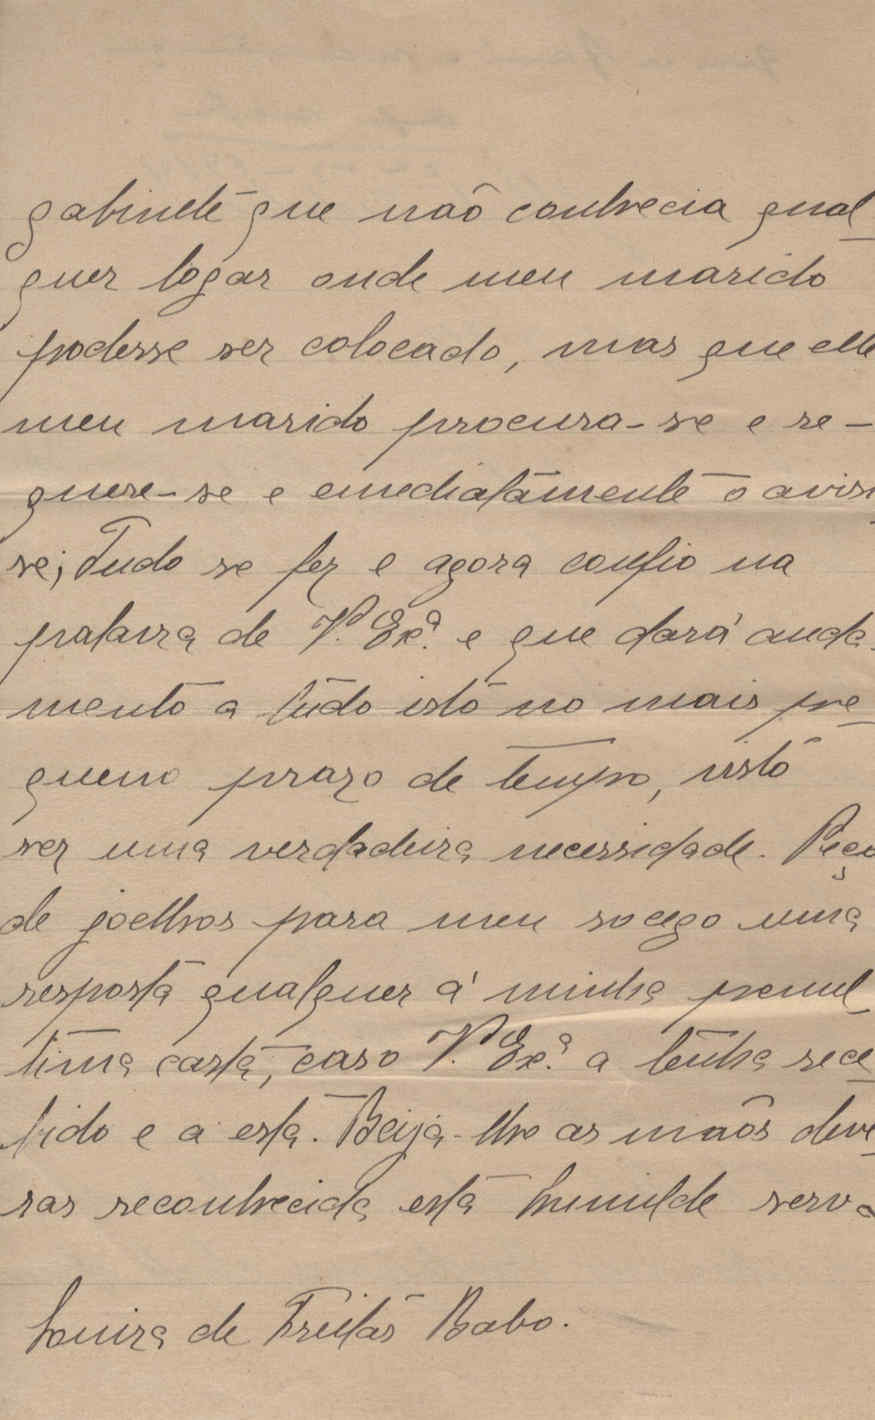 gabinete que não conhecia qual-
quer logar onde meu marido
podesse ser colocado, mas que elle
meu marido procura-se e re-
quere-se e emediatamente o avisa
se; Tudo se fez e agora confio na
palavra de V. Exª. e que dará anda-
mento a tudo isto no mais pe-
queno prazo de tempo, visto
ser uma verdadeira necessidade. Peço
de joelhos para meu socego uma
resposta qualquer á minha penul-
tima carta, caso V. Exª. a tenha rece-
bido e a esta. Beija-lhe as mãos deve-
ras reconhecida esta humilde serva
Luiza de Freitas Babo.